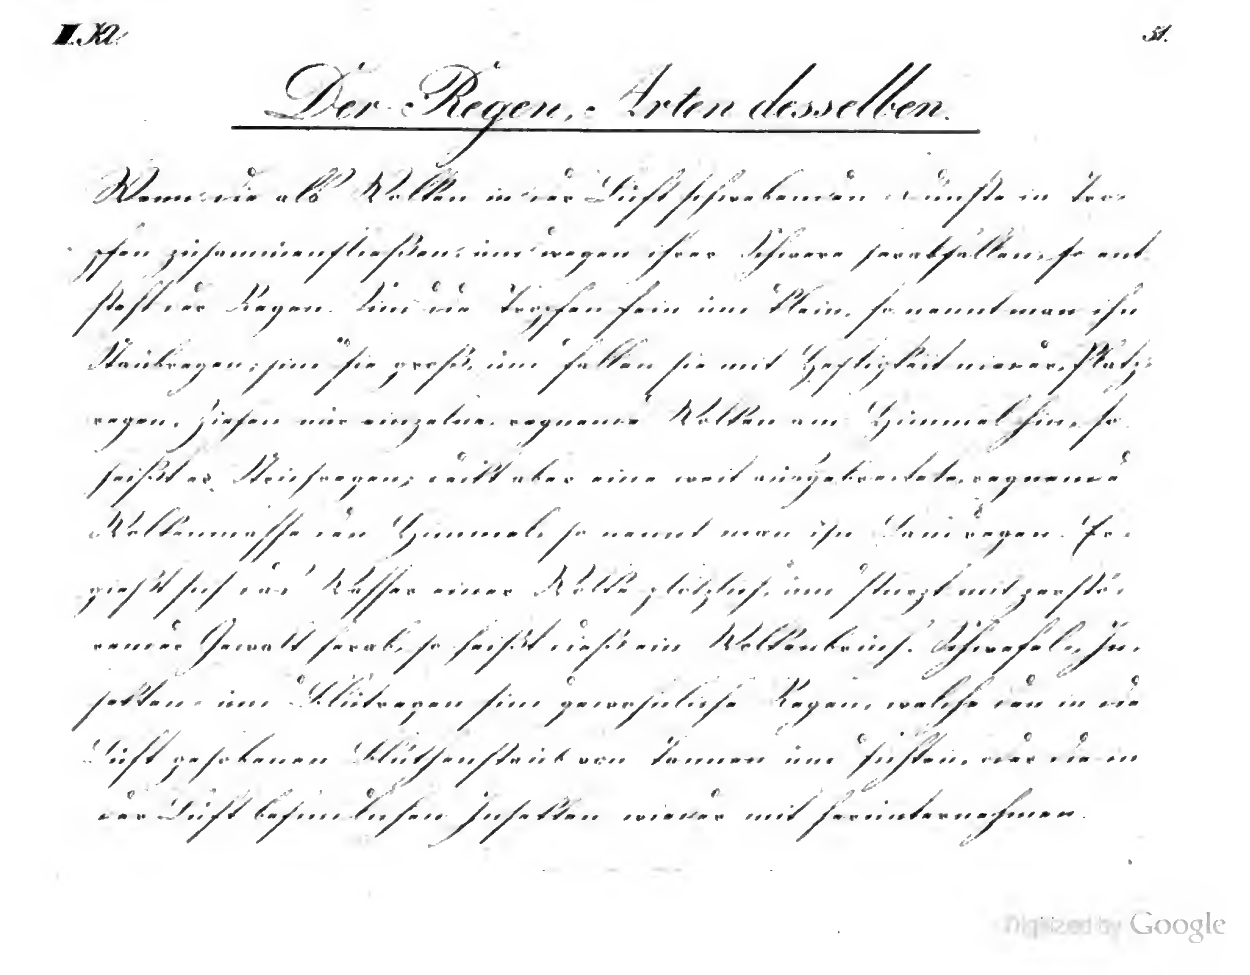 II. Kl.
31.
Der Regen, Arten desselben.
Wenn die als Wolken in der Luft schwebenden Dünste in Tro-
pfen zusammenfließen, und wegen ihrer Schwere herabfallen, so ent-
steht der Regen. Sind die Tropfen fein und klein, so nennt man ihn
Staubregen; sind sie groß, und fallen sie mit Heftigkeit nieder, Platz-
regen. Ziehen nur einzelne regnende Wolken am Himmel hin, so
heißt er Strichregen; deckt aber eine weit ausgebreitete, regnende
Wolkenmasse den Himmel, so nennt man ihn Landregen. Er-
gießt sich das Wasser einer Wolke plötzlich, und stürzt mit zerstö-
render Gewalt herab, so heißt dieß ein Wolkenbruch. Schwefel-, In-
sekten- und Blutregen sind gewöhnliche Regen, welche den in die
Luft gehobenen Blüthenstaub von Tannen und Fichten, oder die in
der Luft befindlichen Insekten wieder mit herunternehmen.
Digitized by Google